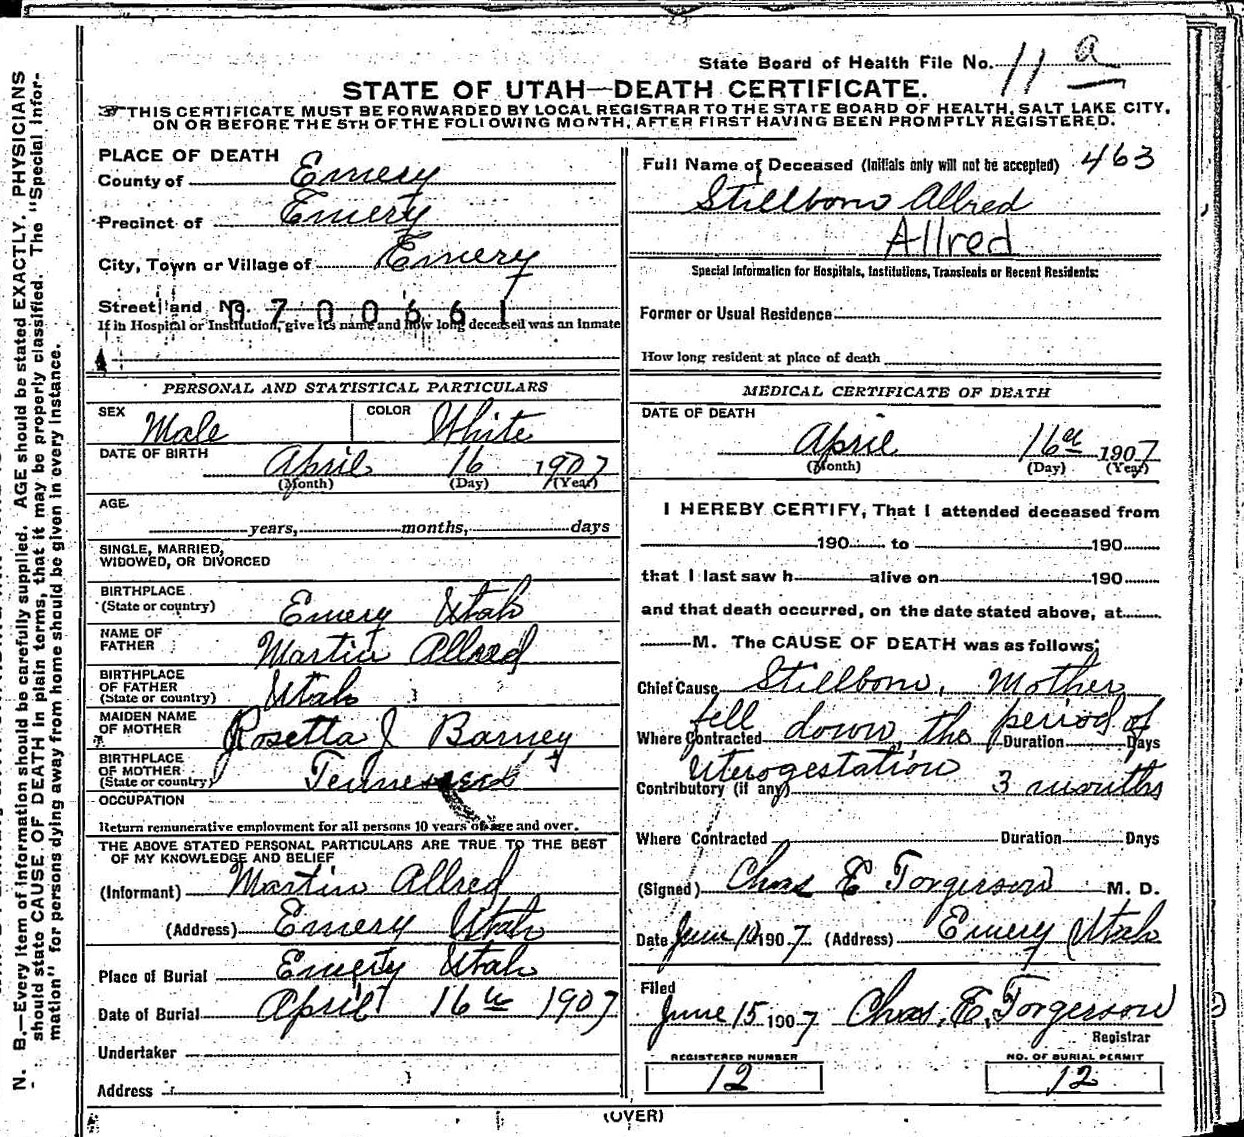 State Board of Health File No. 11 a
STATE OF UTAH—DEATH CERTIFICATE.
THIS CERTIFICATE MUST BE FORWARDED BY LOCAL REGISTRAR TO THE STATE BOARD OF HEALTH, SALT LAKE CITY,
ON OR BEFORE THE 5TH OF THE FOLLOWING MONTH, AFTER FIRST HAVING BEEN PROMPTLY REGISTERED.
N. B.—Every item of information should be carefully supplied. AGE should be stated EXACTLY. PHYSICIANS
should state CAUSE OF DEATH in plain terms, that it may be properly classified. The "Special Infor-
mation" for persons dying away from home should be given in every instance.
PLACE OF DEATH
County of Emery
Precinct of Emery
City, Town or Village of Emery
Street and No.
0700661
If in Hospital or Institution, give its name and how long deceased was an Inmate
PERSONAL AND STATISTICAL PARTICULARS
SEX Male COLOR White
DATE OF BIRTH April 16 1907
(Month) (Day) (Year)
AGE
years, months, days
SINGLE, MARRIED,
WIDOWED, OR DIVORCED
BIRTHPLACE
(State or country) Emery Utah
NAME OF
FATHER Martin Allred
BIRTHPLACE
OF FATHER
(State or country) Utah
MAIDEN NAME
OF MOTHER Rosetta J Barney
BIRTHPLACE
OF MOTHER
(State or country)
OCCUPATION
Return remunerative employment for all persons 10 years of age and over.
THE ABOVE STATED PERSONAL PARTICULARS ARE TRUE TO THE BEST
OF MY KNOWLEDGE AND BELIEF
(Informant) Martin Allred
(Address) Emery Utah
Place of Burial Emery Utah
Date of Burial April 16th 1907
Undertaker
Address
Full Name of Deceased (Initials only will not be accepted) 463
Stillborn Allred
Allred
Special Information for Hospitals, Institutions, Transients or Recent Residents:
Former or Usual Residence
How long resident at place of death
MEDICAL CERTIFICATE OF DEATH
DATE OF DEATH
April 16th 1907
(Month) (Day) (Year)
I HEREBY CERTIFY, That I attended deceased from
190 to 190
that I last saw h alive on 190
and that death occurred, on the date stated above, at
M. The CAUSE OF DEATH was as follows:
Chief Cause Stillborn, Mother
fell down, the period of
Where Contracted Duration Days
Uterogestation 3 months
Contributory (if any)
Where Contracted Duration Days
(Signed) Chas E Torgerson M. D.
Date June 1907 (Address) Emery Utah
Filed
June 15 1907 Chas. E. Torgerson
Registrar
REGISTERED NUMBER
12
NO. OF BURIAL PERMIT
12
(OVER)